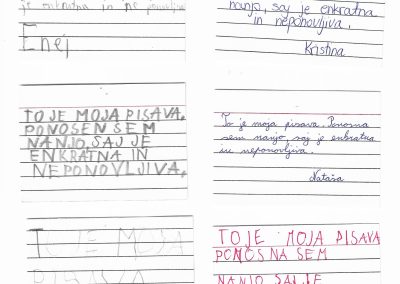 je enkratna in ne ponovljiva
Enej
nanjo, saj je enkratna
in neponovljiva.
Kristina
TO JE MOJA PISAVA.
PONOSEN SEM
NANJO, SAJ JE
ENKRATNA IN
NEPONOVLJIVA.
To je moja pisava. Ponosna
sem nanjo, saj je enkratna
in neponovljiva.
Nataša
TO JE MOJA
PISAVA
TO JE MOJA PISAVA
PONOSNA SEM
NANJO SAJ JE